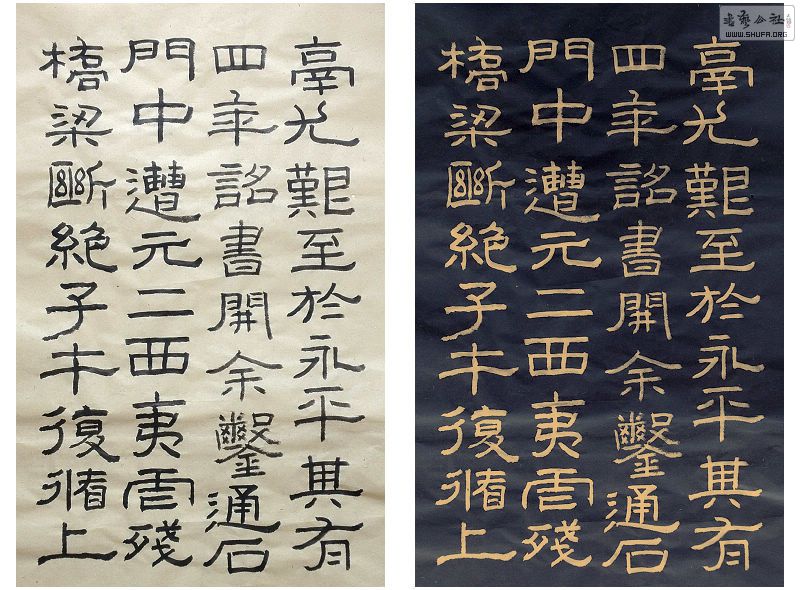 鬲尤艱至於永平其有
四年詔書開余鑿通石
門中遭元二西夷虐殘
橋梁斷絶子午復循上
鬲尤艱至於永平其有
四年詔書開余鑿通石
門中遭元二西夷虐殘
橋梁斷絶子午復循上
书艺公社
WWW.SHUFA.ORG